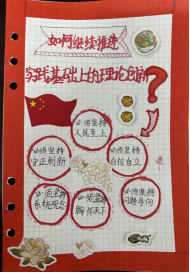 如何继续推进
实践基础上的理论创新?
必须坚持
人民至上
必须坚持
守正创新
必须坚持
自信自立
必须坚持
系统观念
必须坚持
胸怀天下
必须坚持
问题导向